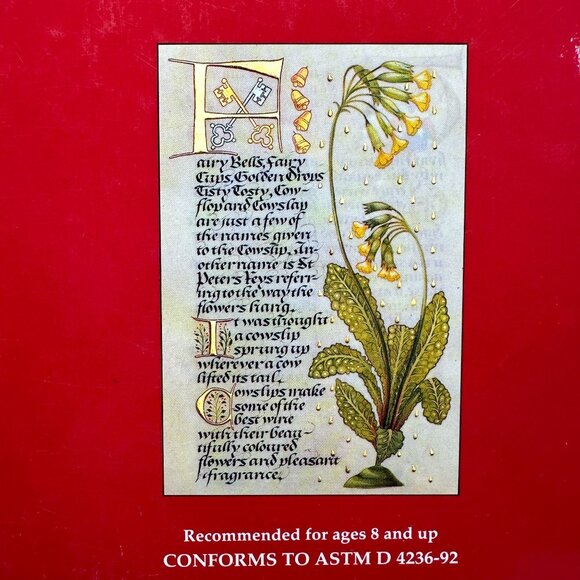 Fairy Bells, Fairy
Cups, Golden Drops
Tisty Tosty, Cow-
flop and Cowslap
are just a few of
the names given
to the Cowslip. An-
other name is St
Peters Keys referr-
ing to the way the
flowers hang.
It was thought
a cowslip
sprung up
wherever a cow
lifted its tail.
Cowslips make
some of the
best wine
with their beau-
tifully coloured
flowers and pleasant
fragrance.
Recommended for ages 8 and up
CONFORMS TO ASTM D 4236-92